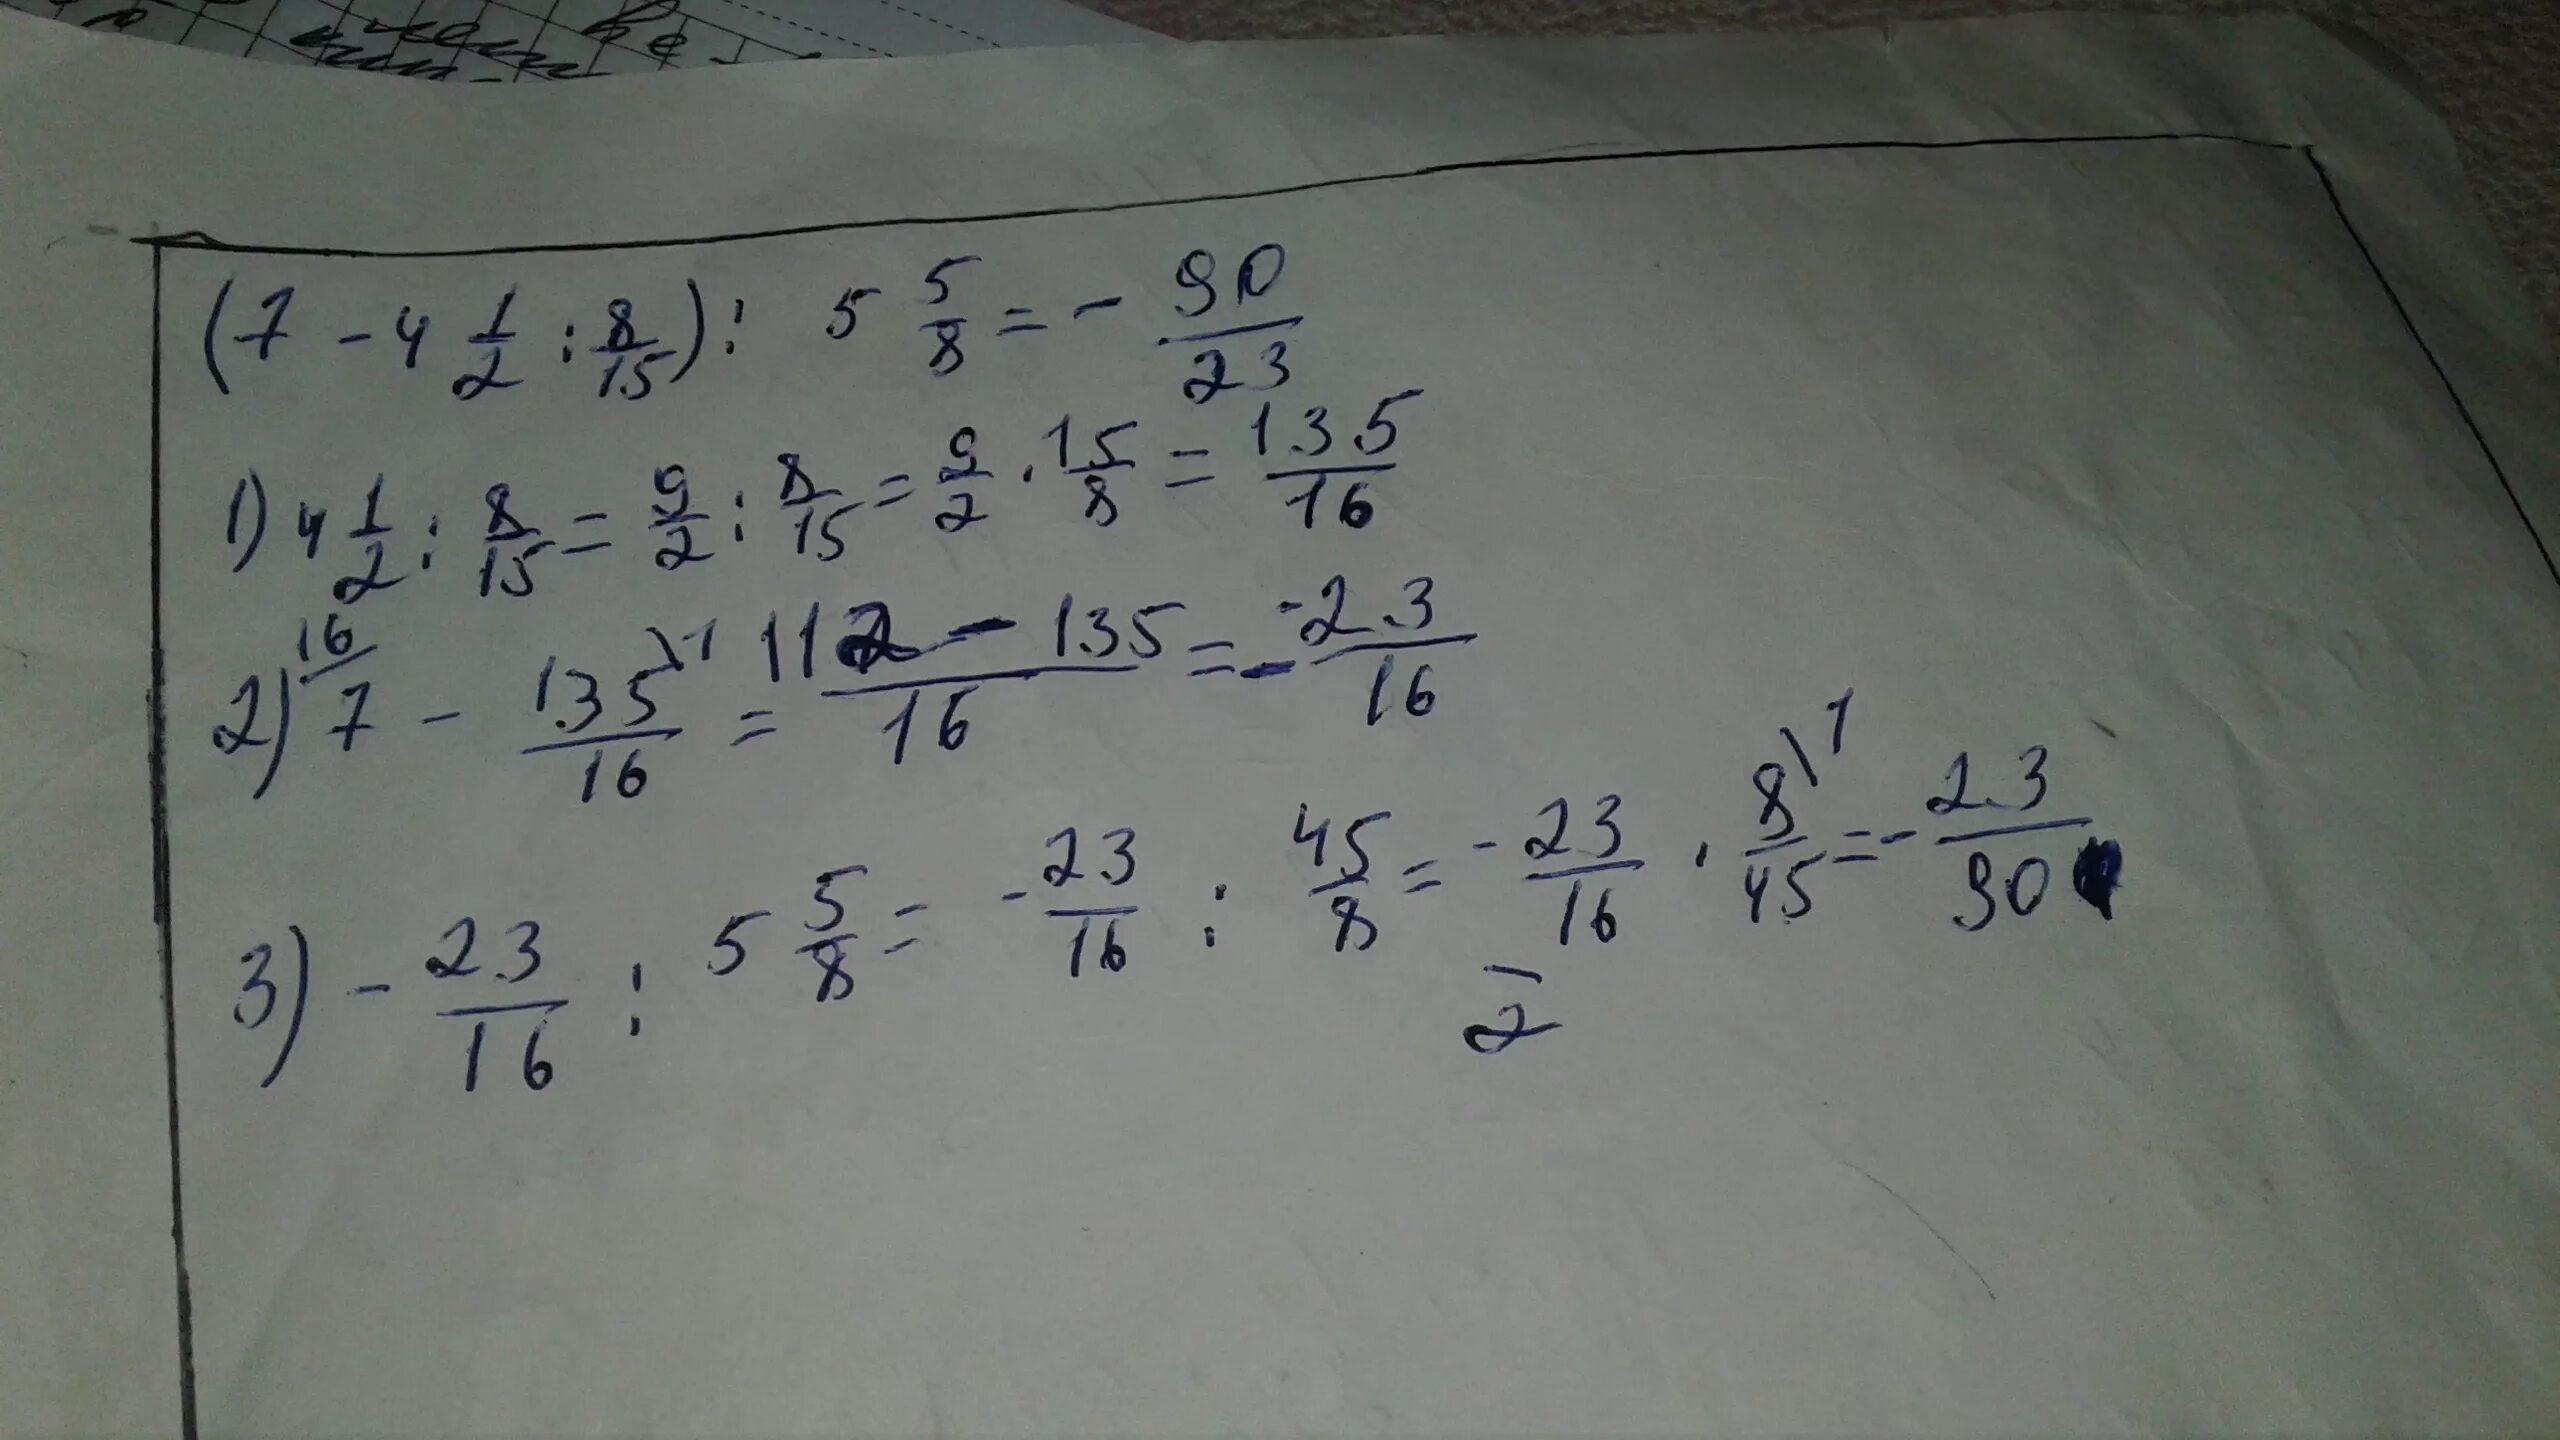 (7 - 4 1/2 : 8/15) : 5 5/8 = - 90/23
1) 4 1/2 : 8/15 = 9/2 : 8/15 = 9/2 · 15/8 = 135/16
2) 16/ 7 - 135\1/16 = 112 - 135/16 = - -23/16
3) - 23/16 : 5 5/8 = - 23/16 : 45/8 = - 23/16 · 8\1/45 = - 23/90
2